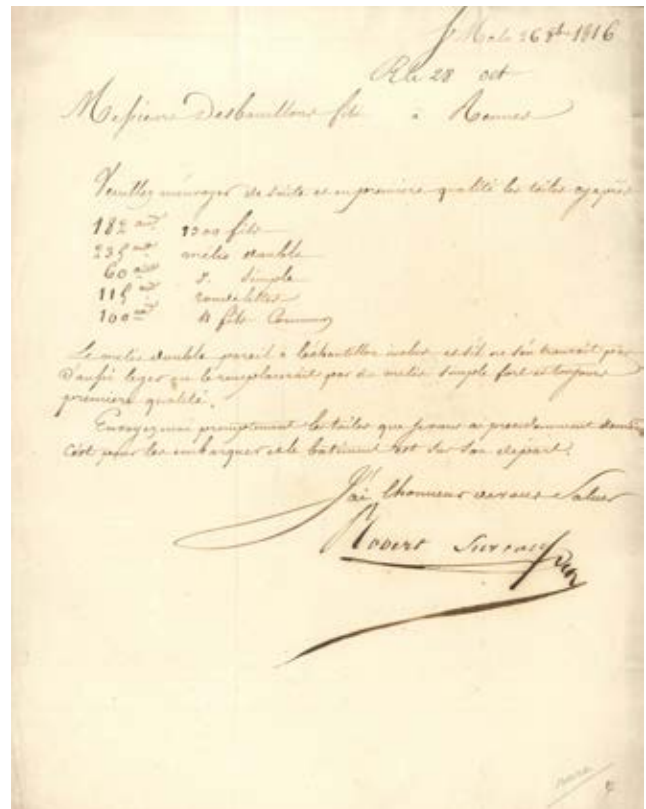 St Malo 26 8bre 1816
R le 28 oct
Messieurs Desbouillons fils à Rennes
Veuillez m'envoyer de suite et en premiere qualité les toiles cy après
182 aunes 1300 fils
235 aunes mélis double
60 aunes d. simple
115 aunes rondelettes
100 aunes 4 fils Commun
Le mélis double pareil a léchantillon inclus et s'il ne s'en trouvait pas
d'aussi leger on le remplacerait par du melis simple fort et toujours
premiere qualité.
Envoyez moi promptement les toiles que je vous ai precedemment
C'est pour les embarquer et le batiment est sur son départ.
J'ai lhonneur de vous Saluer
Robert Surcouf